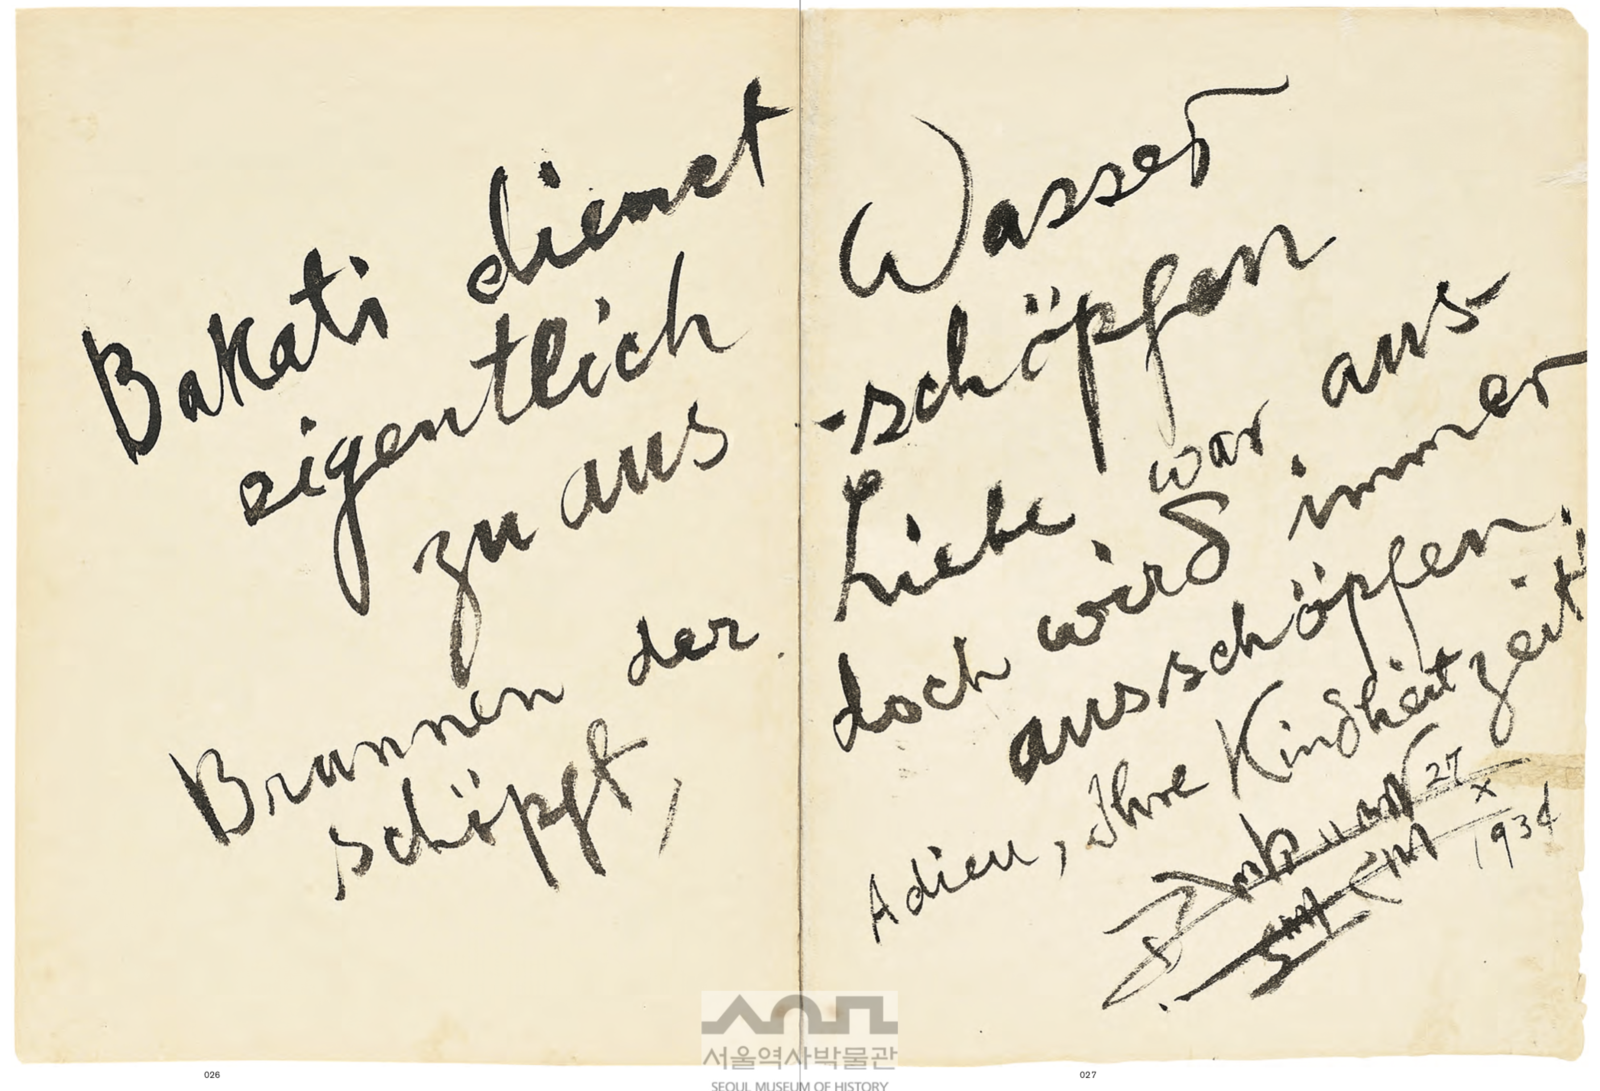 Bakati dienet
eigentlich
zu aus
Brunnen der
schöpft,
026
Wasser
-schöpfen
Liebe war aus-
doch wird immer
ausschöpfen.
Adieu, Ihre Kindheitzeit!
27
X
1934
027
서울역사박물관
SEOUL MUSEUM OF HISTORY